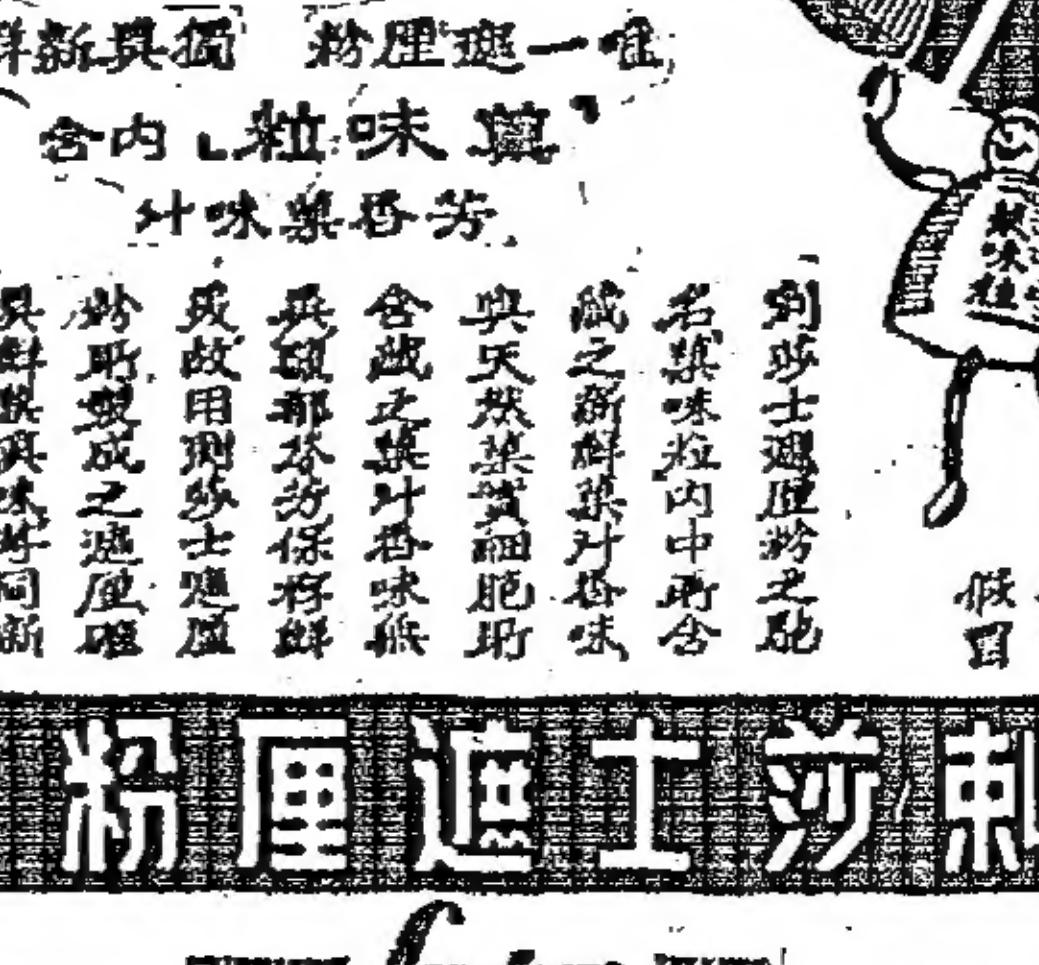 唯一遮厘粉 獨異新鮮
「菓味粒」內含
芳香菓味汁
菓味粒
刺莎士遮厘粉之馳
名菓味粒內中所含
藏之新鮮菓汁香味
與天然菓質細胞所
含藏之菓汁香味無
異郁芬芳保存鮮
故用刺莎士遮厘
粉所製成之遮厘確
鮮菓味同新
刺莎士遮厘粉